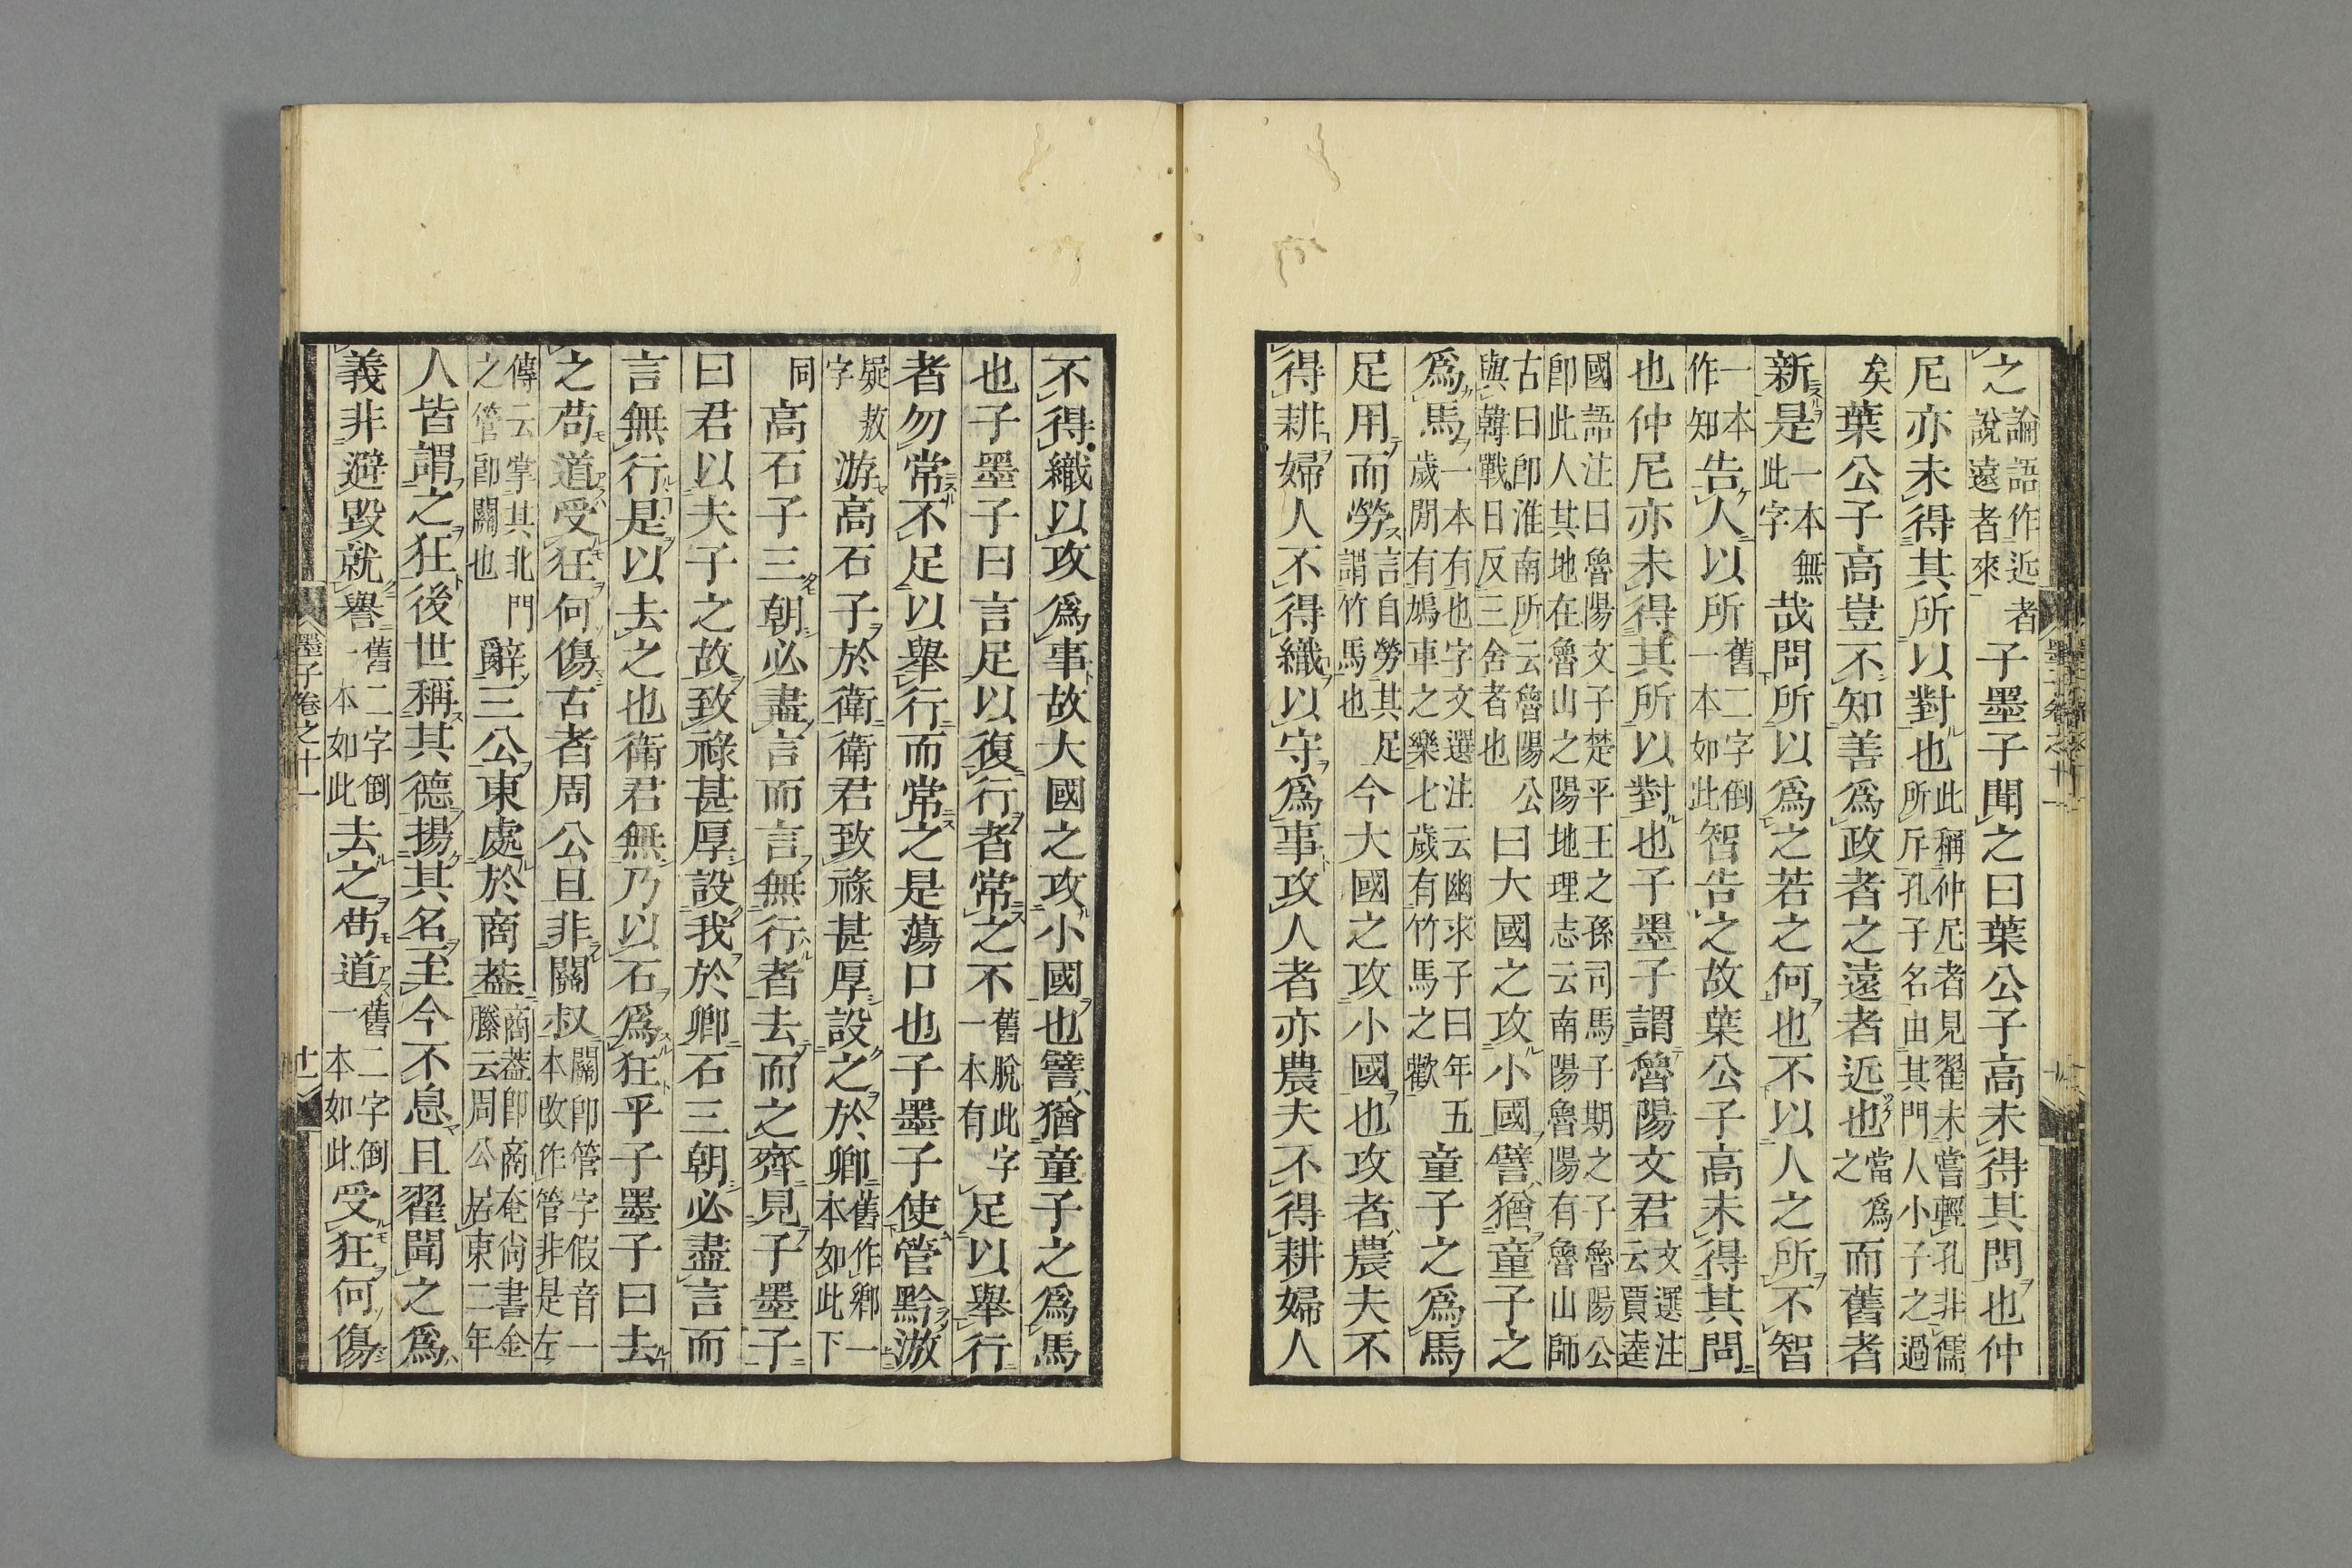 之論語作近者說遠者來子墨子聞之曰葉公子高未得其問也仲
尼亦未得其所以對也此稱仲尼者見翟未嘗輕孔非儒所斥孔子名由其門人小子之過
矣葉公子高豈不知善爲政者之遠者近也當爲之而舊者
新是一本無此字哉問所以爲之若之何也不以人之所不智
一本作知告人以所舊二字倒一本如此智告之故葉公子高未得其問
也仲尼亦未得其所以對也子墨子謂魯陽文君文選注云賈逵
國語注曰魯陽文子楚平王之孫司馬子期之子魯陽公卽此人其地在魯山之陽地理志云南陽魯陽有魯山師
古曰卽淮南所云魯陽公與韓戰日反三舍者也曰大國之攻小國譬猶童子之
爲馬一本有也字文選注云幽求子曰年五歲閒有鳩車之樂七歲有竹馬之歡童子之爲馬
足用而勞言自勞其足謂竹馬也今大國之攻小國也攻者農夫不
得耕婦人不得織以守爲事攻人者亦農夫不得耕婦人
不得織以攻爲事故大國之攻小國也譬猶童子之爲馬
也子墨子曰言足以復行者常之不舊脫此字一本有足以舉行
者勿常不足以舉行而常之是蕩口也子墨子使管黔滶
疑敖字游高石子於衛衛君致祿甚厚設之於卿舊作鄉一本如此下
同高石子三朝必盡言而言無行者去而之齊見子墨子
曰君以夫子之故致祿甚厚設我於卿石三朝必盡言而
言無行是以去之也衛君無乃以石爲狂乎子墨子曰去
之苟道受狂何傷古者周公旦非關叔關卽管字假音一本改作管非是左
傳云掌其北門之管卽關也辭三公東處於商葢商葢卽商奄尙書金縢云周公居東二年
人皆謂之狂後世稱其德揚其名至今不息且翟聞之爲
義非避毀就譽舊二字倒一本如此去之苟道舊二字倒一本如此受狂何傷
墨子卷之十一
十二